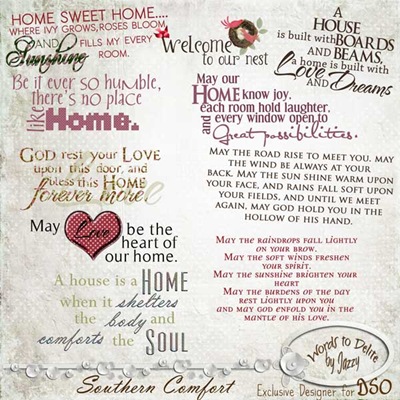 HOME SWEET HOME....
WHERE IVY GROWS, ROSES BLOOM,
AND FILLS MY EVERY
Sunshine ROOM.
Welcome
to our nest
A
HOUSE
is built with BOARDS
AND BEAMS,
a home is built with
Love AND Dreams
Be it ever so humble,
There's no place
like Home.
May our
HOME know joy,
each room hold laughter,
and every window open to
Great possibilities.
GOD rest your LOVE
upon this door, and
bless this HOME
forever more
MAY THE ROAD RISE TO MEET YOU, MAY
THE WIND BE ALWAYS AT YOUR
BACK. MAY THE SUN SHINE WARM UPON
YOUR FACE, AND RAINS FALL SOFT UPON
YOUR FIELDS, AND UNTIL WE MEET
AGAIN, MAY GOD HOLD YOU IN THE
HOLLOW OF HIS HAND.
May Love be the
heart of
our home.
MAY THE RAINDROPS FALL LIGHTLY
ON YOUR BROW.
MAY THE SOFT WINDS FRESHEN
YOUR SPIRIT.
MAY THE SUNSHINE BRIGHTEN YOUR
HEART
MAY THE BURDENS OF THE DAY
REST LIGHTLY UPON YOU
AND MAY GOD ENFOLD YOU IN THE
MANTLE OF HIS LOVE.
A house is a HOME
when it shelters
the body and
comforts the SOUL
Words to Delite
by Jazzy
Southern Comfort
Exclusive Designer for DSO